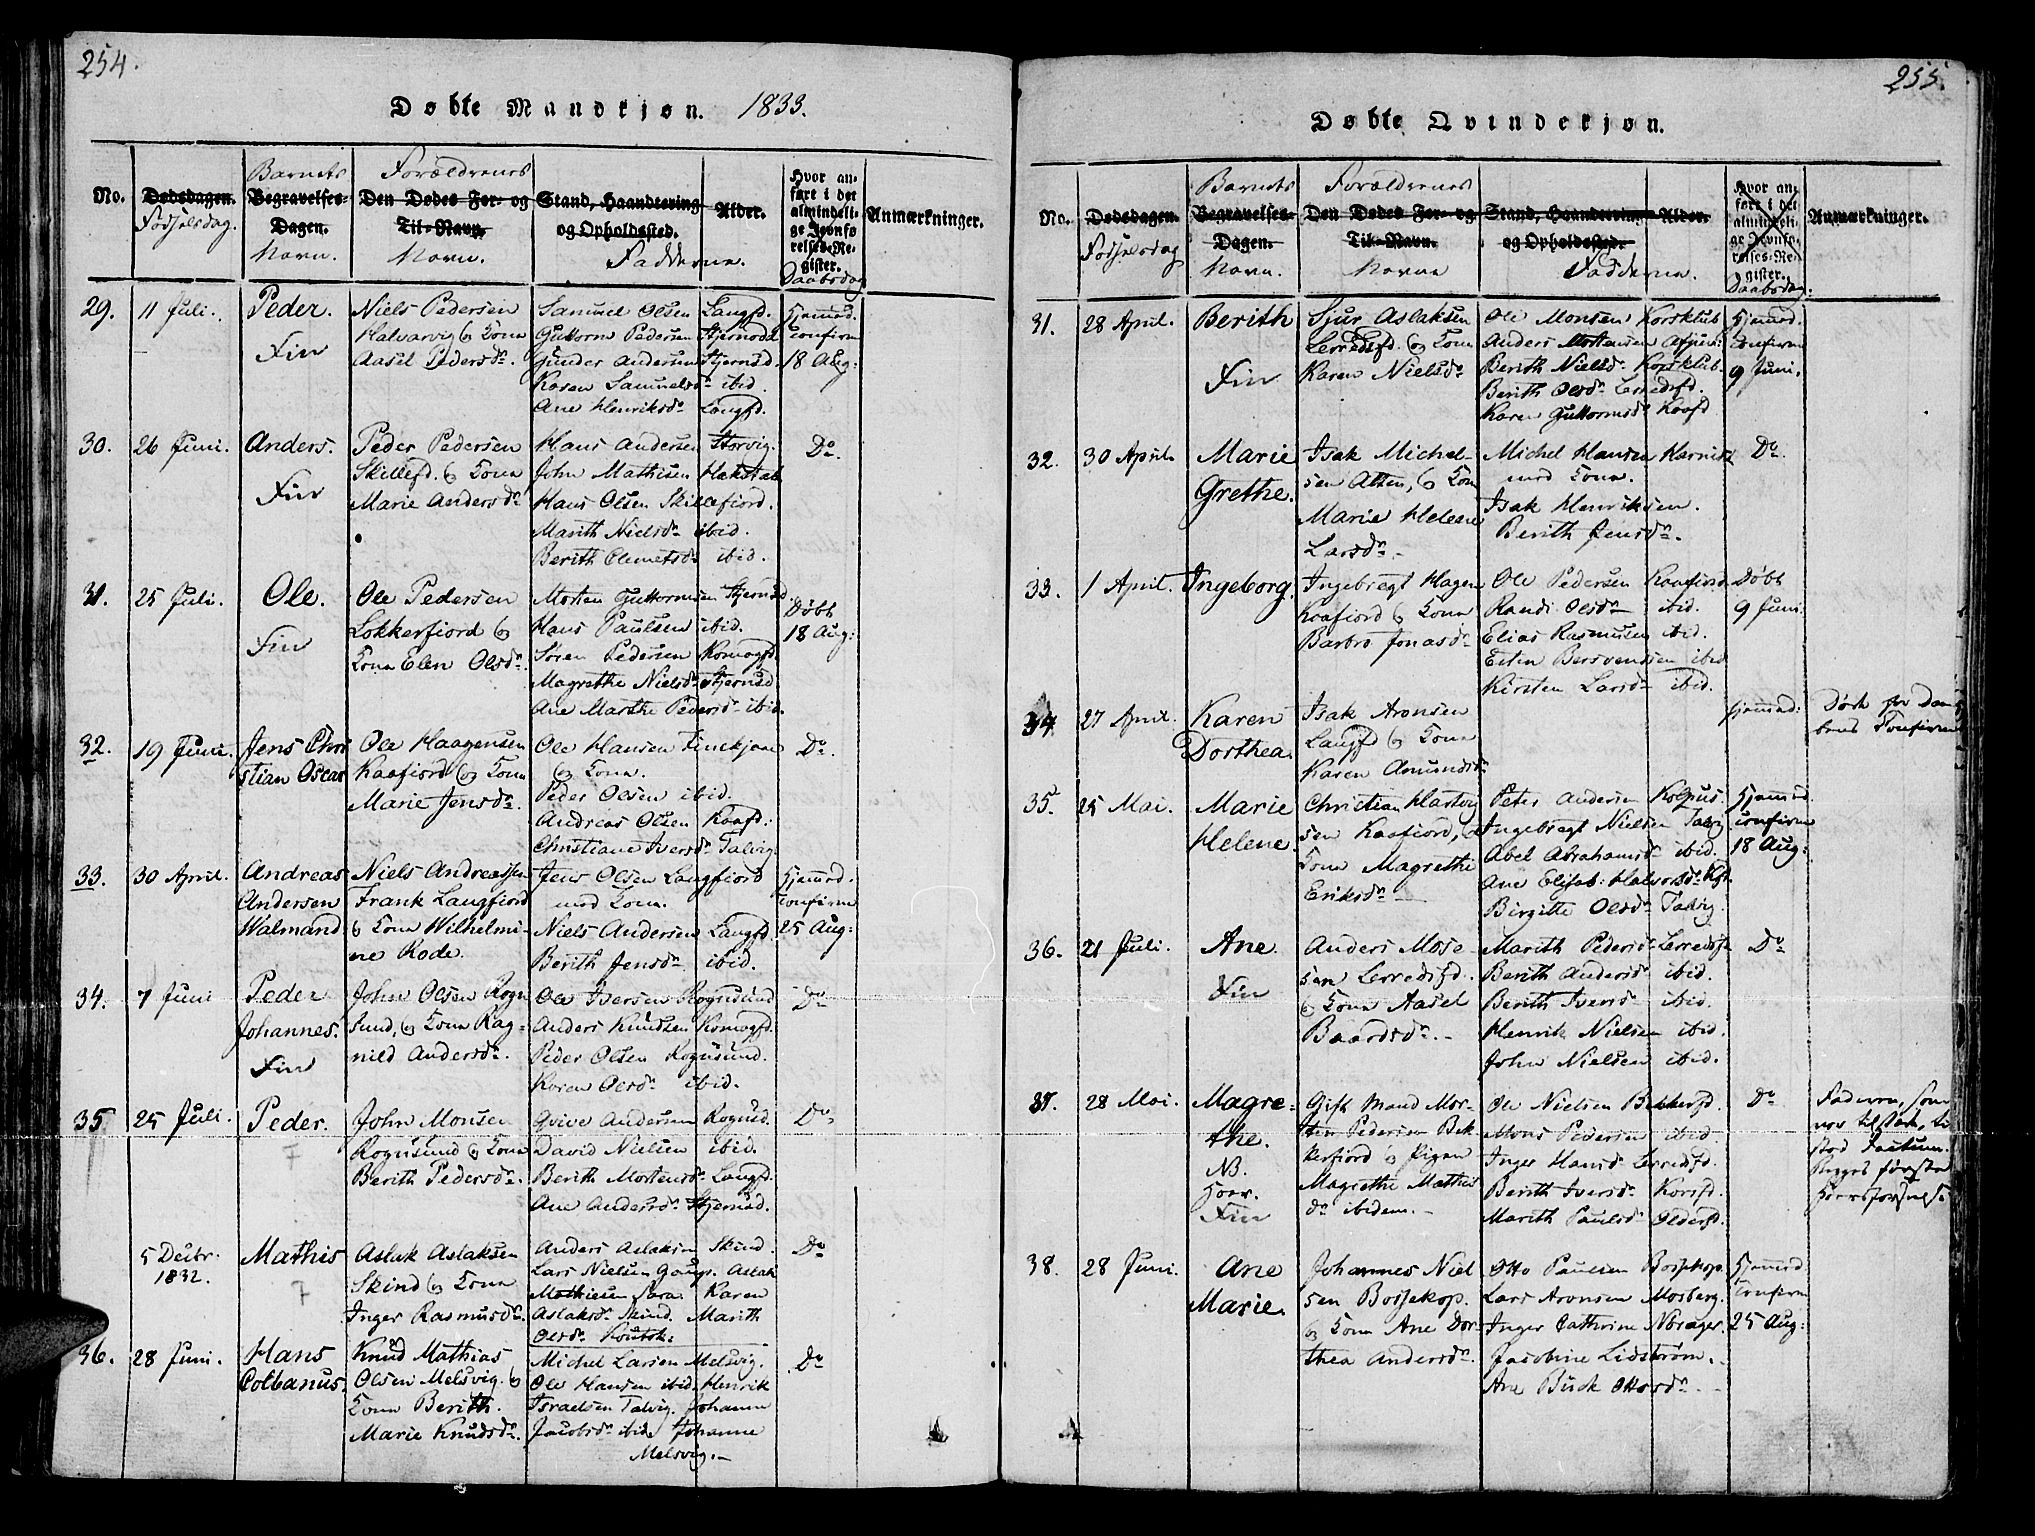 254.
Døbte Mandkjøn. 1833.
No.
Dødsdagen.
Fødselsdag.
Barnets
Begravelses-
Dagen.
Navn.
Forældrenes
Den Dødes For- og
Til-Navn.
Navn.
Stand, Haandtering
og Opholdssted.
Alder.
Fadderne.
Hvor an-
ført i det
almindeli-
ge Jevnfø-
relses-Re-
gister.
Daabsdag
Anmærkninger.
29.
11 Juli.
Peder.
Fin
Niels Pedersen
Halvarvig og Kona
Aasel Pedersdr.
Samuel Olsen Langfd.
Guttorm Pedersen Stjernød
Gunder Andersen Stjernsd.
Karen Samuelsdr ibid.
Ane Henriksdr Langfd.
Hjemmd.
confirm
18 Aug:
30.
26 Juni.
Anders.
Fin
Peder Pedersen
Skillefd. og Kona
Marie Andersdr
Hans Andersen Storvig.
John Mathisen Hakstab
Hans Olsen Skillefiord.
Marith Nielsdr ibid.
Berith Clemetsdr ibid.
Do.
31.
25 Juli.
Ole.
Fin
Ole Pedersen
Lokkerfiord og
Kona Elen Olsdr.
Morten Guttormsen Stjernsd.
Hans Paulsen ibid.
Søren Pedersen Komagfd.
Magrethe Nielsdr Stjernsd.
Ane Marthe Pedersdr ibid.
Døbt
18 Aug:
32.
19 Juni.
Jens Chri
stian Oscar
Ole Haagensen
Kaafiord og Kona
Marie Jensdr.
Ole Hansen
og Kona.
Peder Olsen ibid.
Andreas Olsen Kaafd:
Christiane Iversdr Talvig.
Do.
33.
30 April.
Andreas
Andersen
Walmand
Niels Andreassen
Frank Langfiord
og Kona Wilhelmi-
ne Rode.
Jens Olsen Langfiord
med Kona.
Niels Andersen Langfd.
Berith Jensdr ibid.
Hjemmd.
confirm
25 Aug:
34.
7 Juni
Peder
Johannes.
Fin
John Olsen Rogn
sund, og Kona Rag-
nild Andersdr.
Ole Iversen Rognsund
Anders Knudsen Komagfd.
Peder Olsen Rognsund.
Karen Olsdr ibid.
Do
35
25 Juli.
Peder.
F
John Monsen
Rognsund og Kona
Berith Pedersdr.
Qvive Andersen Rognsd.
David Nielsen ibid.
Berith Mortensdr Langfd.
Ane Andersdr Stjernsd.
Do
5 Decbr.
1832.
Mathis
F
Aslak Aslaksen
Skind og Kona
Inger Rasmusdr.
Anders Aslaksen Skind.
Lars Nielsen Aslak
Mathiesen Sara Karen
Aslaksdr Skind. Marith
Olsdr Koutok:
Do
36.
28 Juni.
Hans
Colbanus.
Knud Mathias
Olsen Melsvig. og
Kona Berith
Marie Knudsdr.
Michel Larsen Melsvig.
Ole Hansen ibid. Henrik
Israelsen Talvig. Johanna
Jacobsdr ibid. Johanne
Melsvig.
Do
255.
Døbte Qvindekjøn.
No.
Dødsdagen.
Fødselsdag
Barnets
Begravelses-
Dagen.
Navn.
Forældrenes
Den Dødes For- og
Til-Navn.
Navne
Stand, Haandtering
og Opholdssted.
Alder.
Fadderne.
Hvor an-
ført i det
almindeli-
ge Jevnfø-
relses-Re-
gister.
Daabsdag.
Anmærkninger.
31.
28 April.
Berith
Fin
Sjur Aslaksen
Lerredsfd. og Kona
Karen Nielsdr
Ole Monsen Korsklub
Anders Mortensen
Berith Nielsdr Korsklub.
Berith Olsdr Lerredsfd.
Karen Guttormsdr Kaafd
Hjemmd.
confirm
9 Juni.
32.
30 April.
Marie
Grethe.
Isak Michel-
sen Alten, og Kona
Marie Helene
Larsdr.
Michel Hansen
med Kona.
Isak Henriksen.
Berith Jensdr.
Do.
33.
1 April.
Ingeborg.
Ingebregt Hagen
Kaafiord og Kona
Barbro Jonasdr
Ole Pedersen Kaafiord
Randi Olsdr ibid.
Elias Rasmusen ibid.
Esten Bersvendsen ibid
Kirsten Larsdr ibid.
Døbt
9 Juni:
34
27 April.
Karen
Dorthea.
Isak Aronsen
Langfd og Kona
Karen Amundsdr
Hjemmd:
35.
25 Mai.
Marie
Helene
Christian Hartvig
sen Kaafiord, og
Kona Magrethe
Eriksdr
Peter Andersen
Ingebregt Nielsen Talvig
Abel Abrahamsdr ibid.
Ane Elisab: Halvorsdr Kfd.
Birgitte Olsdr Talvig.
Hjemmd.
confirm
18 Aug:
36.
21 Juli.
Ane
Fin
Anders Mose
sen Lerredsfd.
og Kona Aasel
Baardsdr.
Marith Pedersdr Lerredsfd
Berith Andersdr ibid.
Berith Iversdr ibid.
Henrik Nielsen ibid.
John Nielsen ibid.
Do
37.
28 Mai.
Magre-
the.
NB.
Hoer.
Fin
Gift Mand Mor-
ten Pedersen Bek
kerfiord og Pigen
Magrethe Mathis
dr ibidem.
Ole Nielsen Bekkerfd.
Mons Pedersen ibid.
Inger Hansdr Lerredsfd.
Berith Iversdr Korsfd.
Marith Paulsdr Olderfd.
Do
Faderen, som
var tilstæde, til
stod Factum.
Pigens første
38.
28 Juni.
Ane
Marie.
Johannes Niel
sen Bossekop.
og Kona Ane Dor-
thea Andersdr.
Otto Paulsen Bossekop.
Lars Aronsen Mosberg.
Inger Cathrine Norager.
Jacobine Lidstrøm.
Ane Buck Ottosdr.
Hjemmd
confirm
25 Aug: